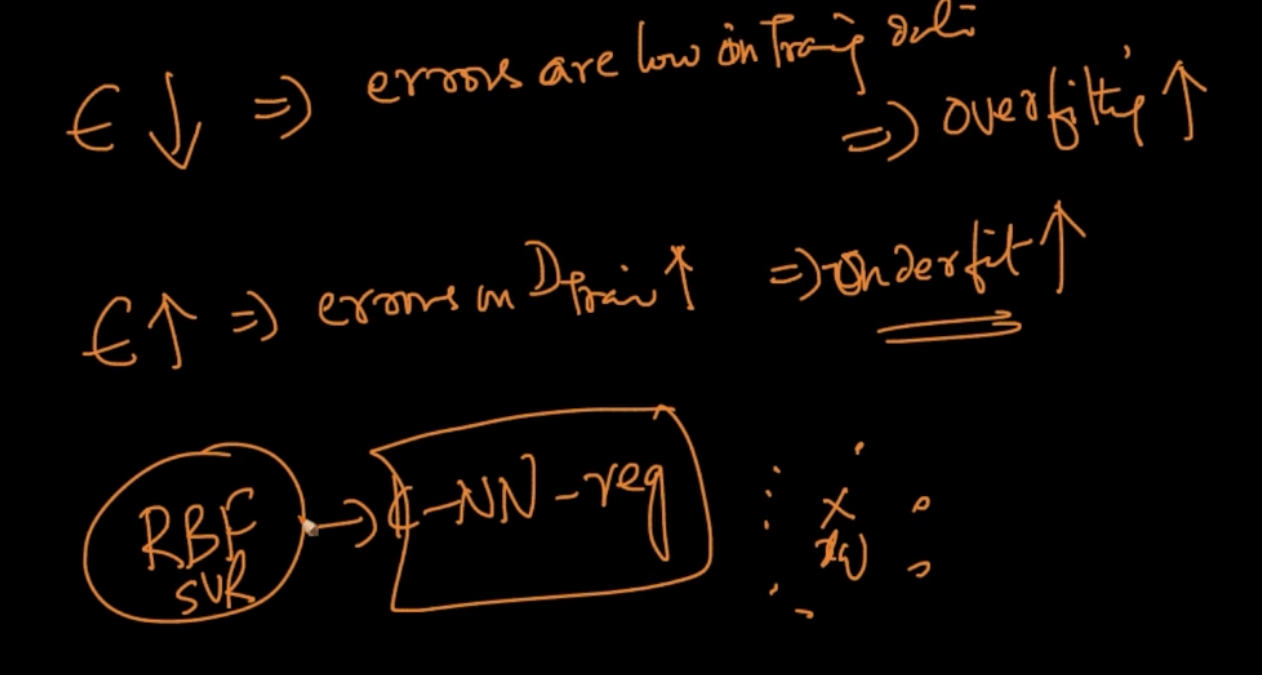 ϵ ↓ ⇒ errors are low in Traing data
⇒ overfitting ↑
ϵ ↑ ⇒ errors on Dtrain ↑ ⇒ underfit ↑
RBF → K-NN-reg x
SVR xq